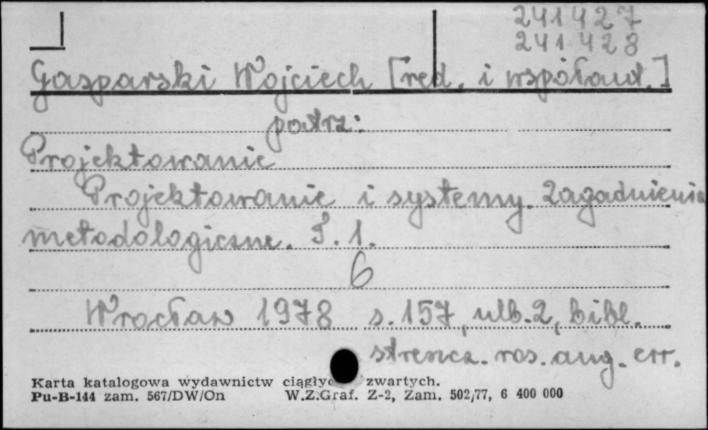 241427
241428
Gasparski Wojciech [red. i współaut.]
patrz:
Projektowanie
Projektowanie i systemy. Zagadnienia
metodologiczne. T. 1.
6
Wrocław 1978 s. 157, ulb. 2, bibl.
streszcz. ros. ang. err.
Karta katalogowa wydawnictw ciągłyc zwartych.
Pu-B-144 zam. 567/DW/On W.Z.Graf. Z-2, Zam. 502/77, 6 400 000